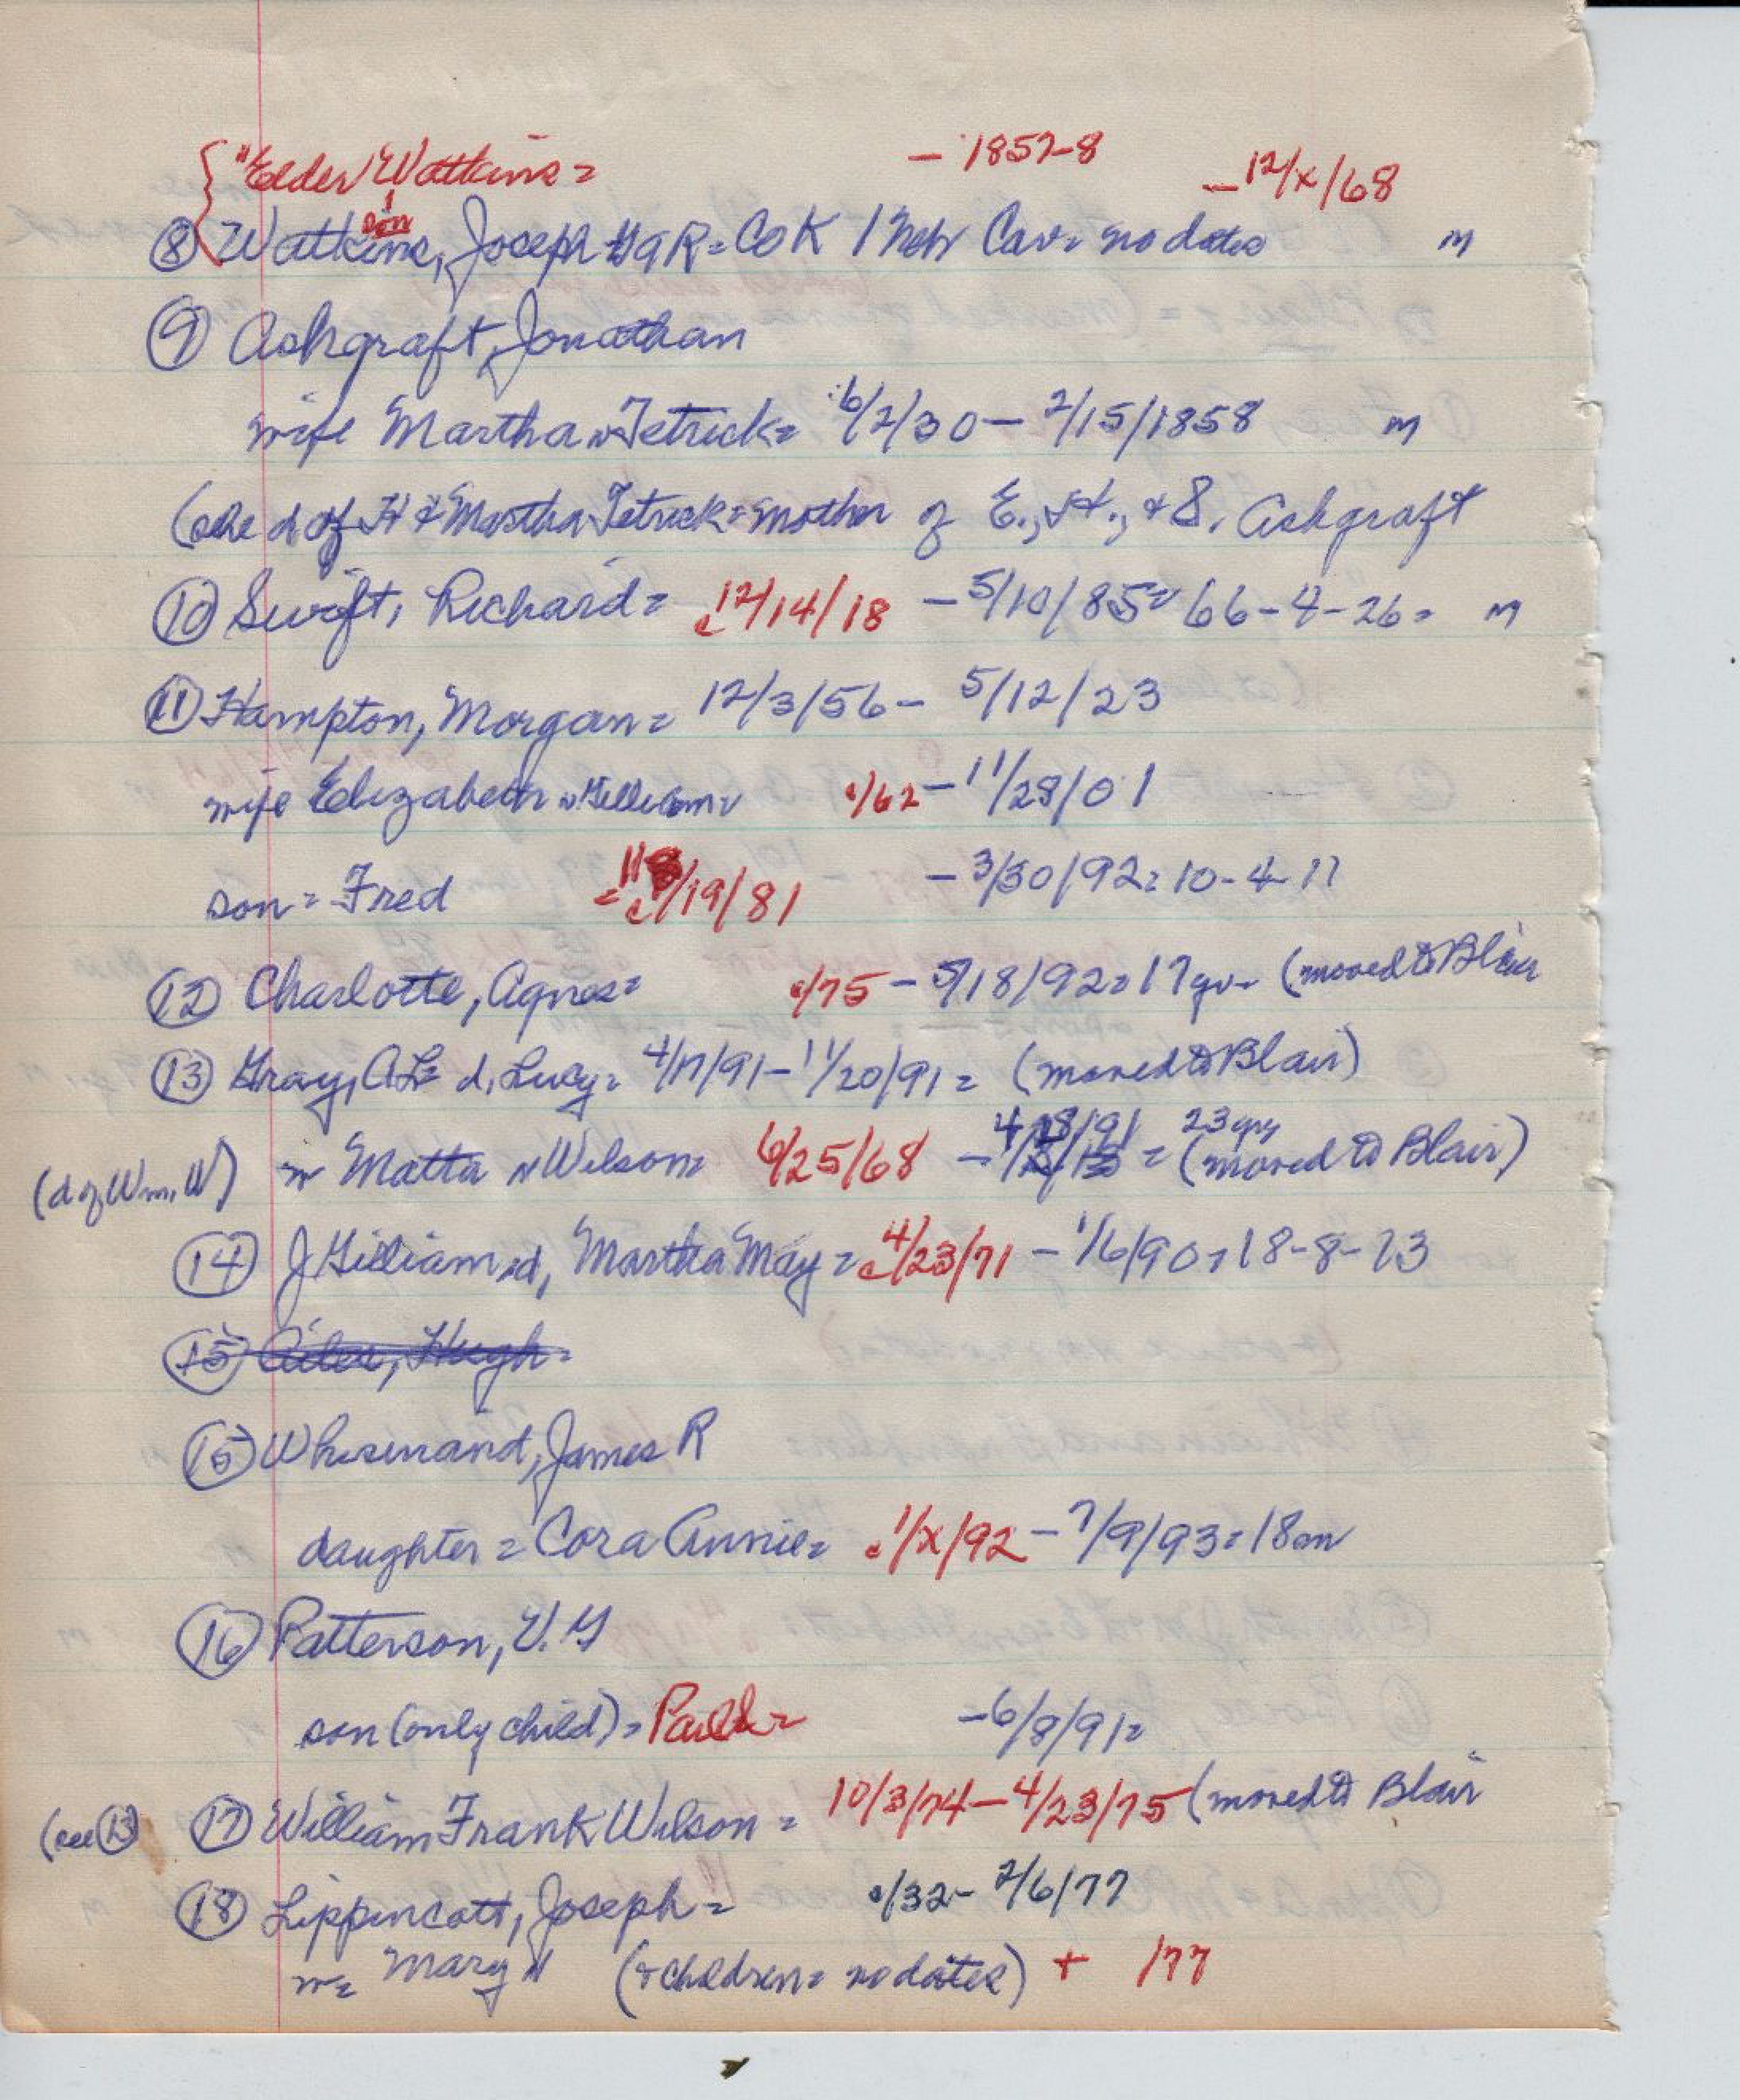 "Elder Watkins = - 1857-8 - 12/x/68
son
⑧ Watkins, Joseph GAR = Co K 1 Nebr Cav = no dates m
⑨ Ashgraft, Jonathan
wife Martha n Tetrick = 6/2/30 - 2/15/1858 m
(she d of H & Martha Tetrick = mother of E., H., + S. Ashgraft
⑩ Swift, Richard = c 12/14/18 - 5/10/85 = 66-4-26 = m
⑪ Hampton, Morgan = 12/3/56 - 5/12/23
wife Elizabeth n Gilliam = c/62 - 11/28/01
son = Fred = c 11/19/81 - 3/30/92 = 10-4-11
⑫ Charlotte, Agnes = c/75 - 5/18/92 = 17 yr - (moved to Blair
⑬ Gray, A L = d, Lucy = 4/17/91 - 11/20/91 = (moved to Blair)
(d of Wm. W) w Matta n Wilson = 6/25/68 - 4/28/91 = 23 yrs (moved to Blair)
⑭ J Gilliam = d, Martha May = c 4/23/71 - 1/6/90 = 18-8-13
⑮ Hugh =
⑮ Whisenand, James R
daughter = Cora Annie = c 1/x/92 - 7/9/93 = 18 m
⑯ Patterson, V. G
son (only child) = - 6/8/91 =
(see ⑬) ⑰ William Frank Wilson = 10/3/74 - 4/23/75 (moved to Blair
⑱ Lippincott, Joseph = c/32 - 2/6/77
w = Mary N (+ children = no dates) + /77